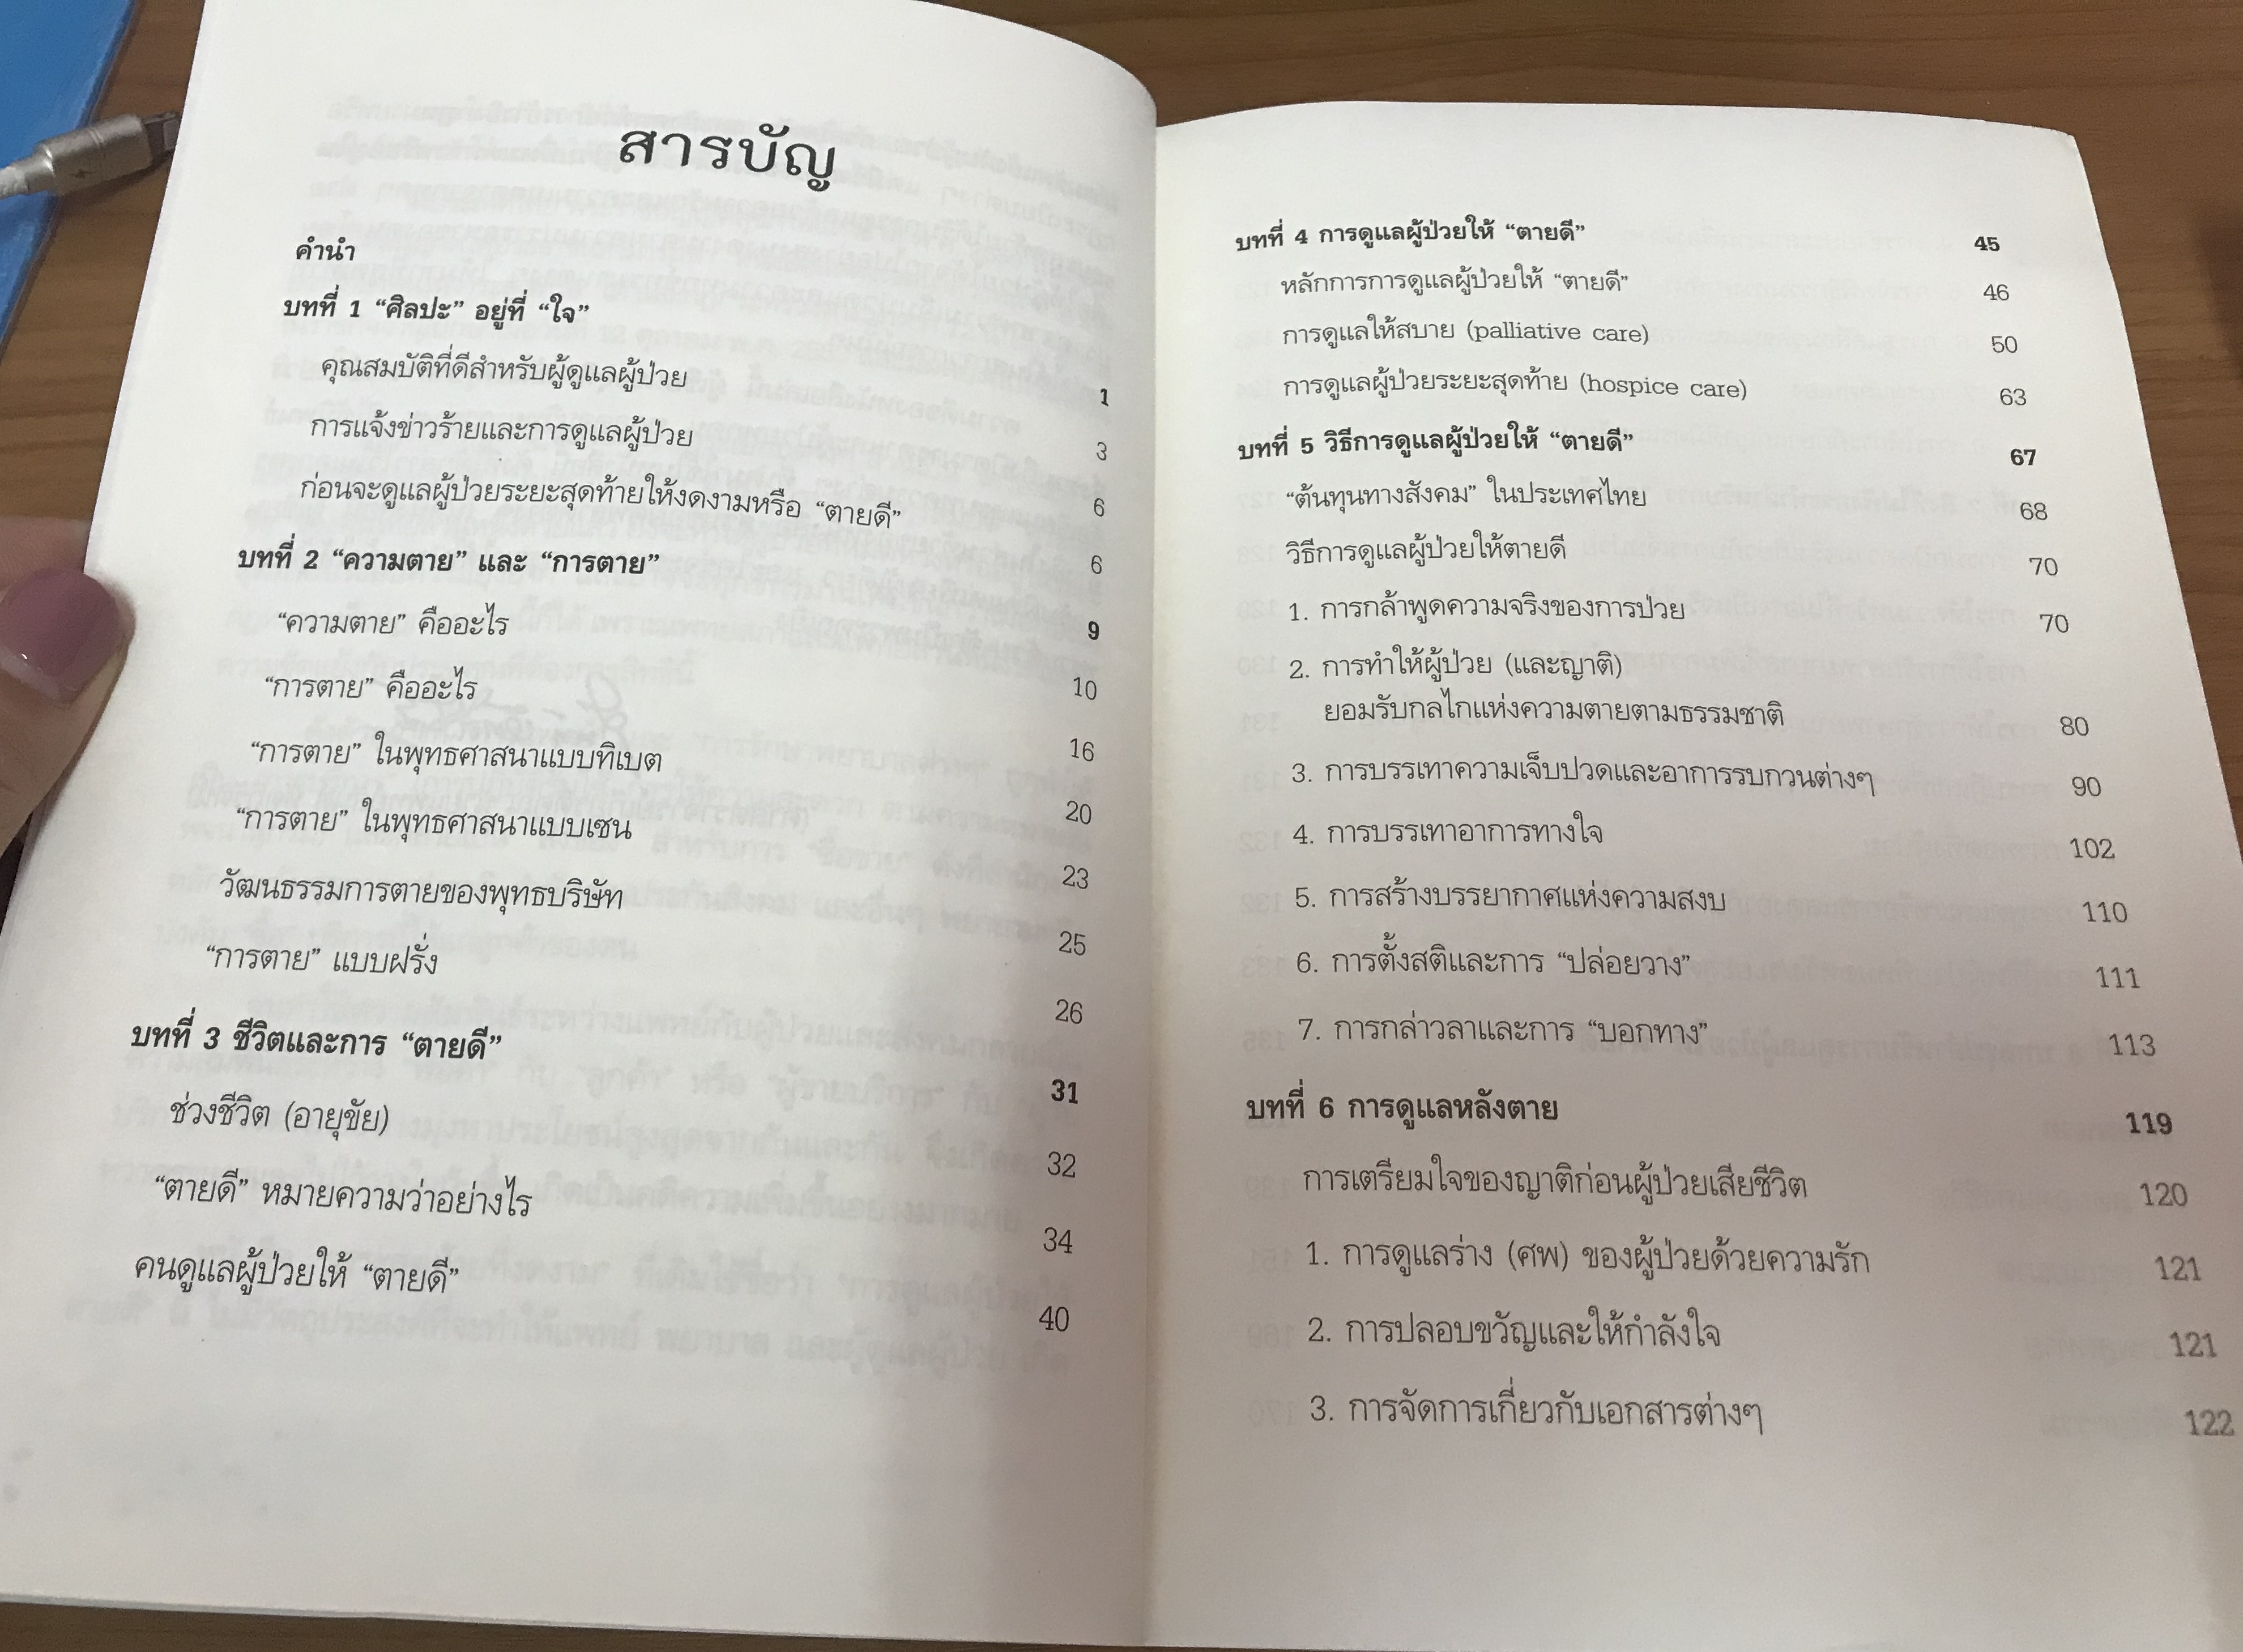 สารบัญ
คำนำ
บทที่ 1 “ศิลปะ” อยู่ที่ “ใจ” 1
คุณสมบัติที่ดีสำหรับผู้ดูแลผู้ป่วย 3
การแจ้งข่าวร้ายและการดูแลผู้ป่วย 6
ก่อนจะดูแลผู้ป่วยระยะสุดท้ายให้งดงามหรือ “ตายดี” 6
บทที่ 2 “ความตาย” และ “การตาย” 9
“ความตาย” คืออะไร 10
“การตาย” คืออะไร 16
“การตาย” ในพุทธศาสนาแบบทิเบต 20
“การตาย” ในพุทธศาสนาแบบเซน 23
วัฒนธรรมการตายของพุทธบริษัท 25
“การตาย” แบบฝรั่ง 26
บทที่ 3 ชีวิตและการ “ตายดี” 31
ช่วงชีวิต (อายุขัย) 32
“ตายดี” หมายความว่าอย่างไร 34
คนดูแลผู้ป่วยให้ “ตายดี” 40
บทที่ 4 การดูแลผู้ป่วยให้ “ตายดี” 45
หลักการการดูแลผู้ป่วยให้ “ตายดี” 46
การดูแลให้สบาย (palliative care) 50
การดูแลผู้ป่วยระยะสุดท้าย (hospice care) 63
บทที่ 5 วิธีการดูแลผู้ป่วยให้ “ตายดี” 67
“ต้นทุนทางสังคม” ในประเทศไทย 68
วิธีการดูแลผู้ป่วยให้ตายดี 70
1. การกล้าพูดความจริงของการป่วย 70
2. การทำให้ผู้ป่วย (และญาติ)
ยอมรับกลไกแห่งความตายตามธรรมชาติ 80
3. การบรรเทาความเจ็บปวดและอาการรบกวนต่างๆ 90
4. การบรรเทาอาการทางใจ 102
5. การสร้างบรรยากาศแห่งความสงบ 110
6. การตั้งสติและการ “ปล่อยวาง” 111
7. การกล่าวลาและการ “บอกทาง” 113
บทที่ 6 การดูแลหลังตาย 119
การเตรียมใจของญาติก่อนผู้ป่วยเสียชีวิต 120
1. การดูแลร่าง (ศพ) ของผู้ป่วยด้วยความรัก 121
2. การปลอบขวัญและให้กำลังใจ 121
3. การจัดการเกี่ยวกับเอกสารต่างๆ 122